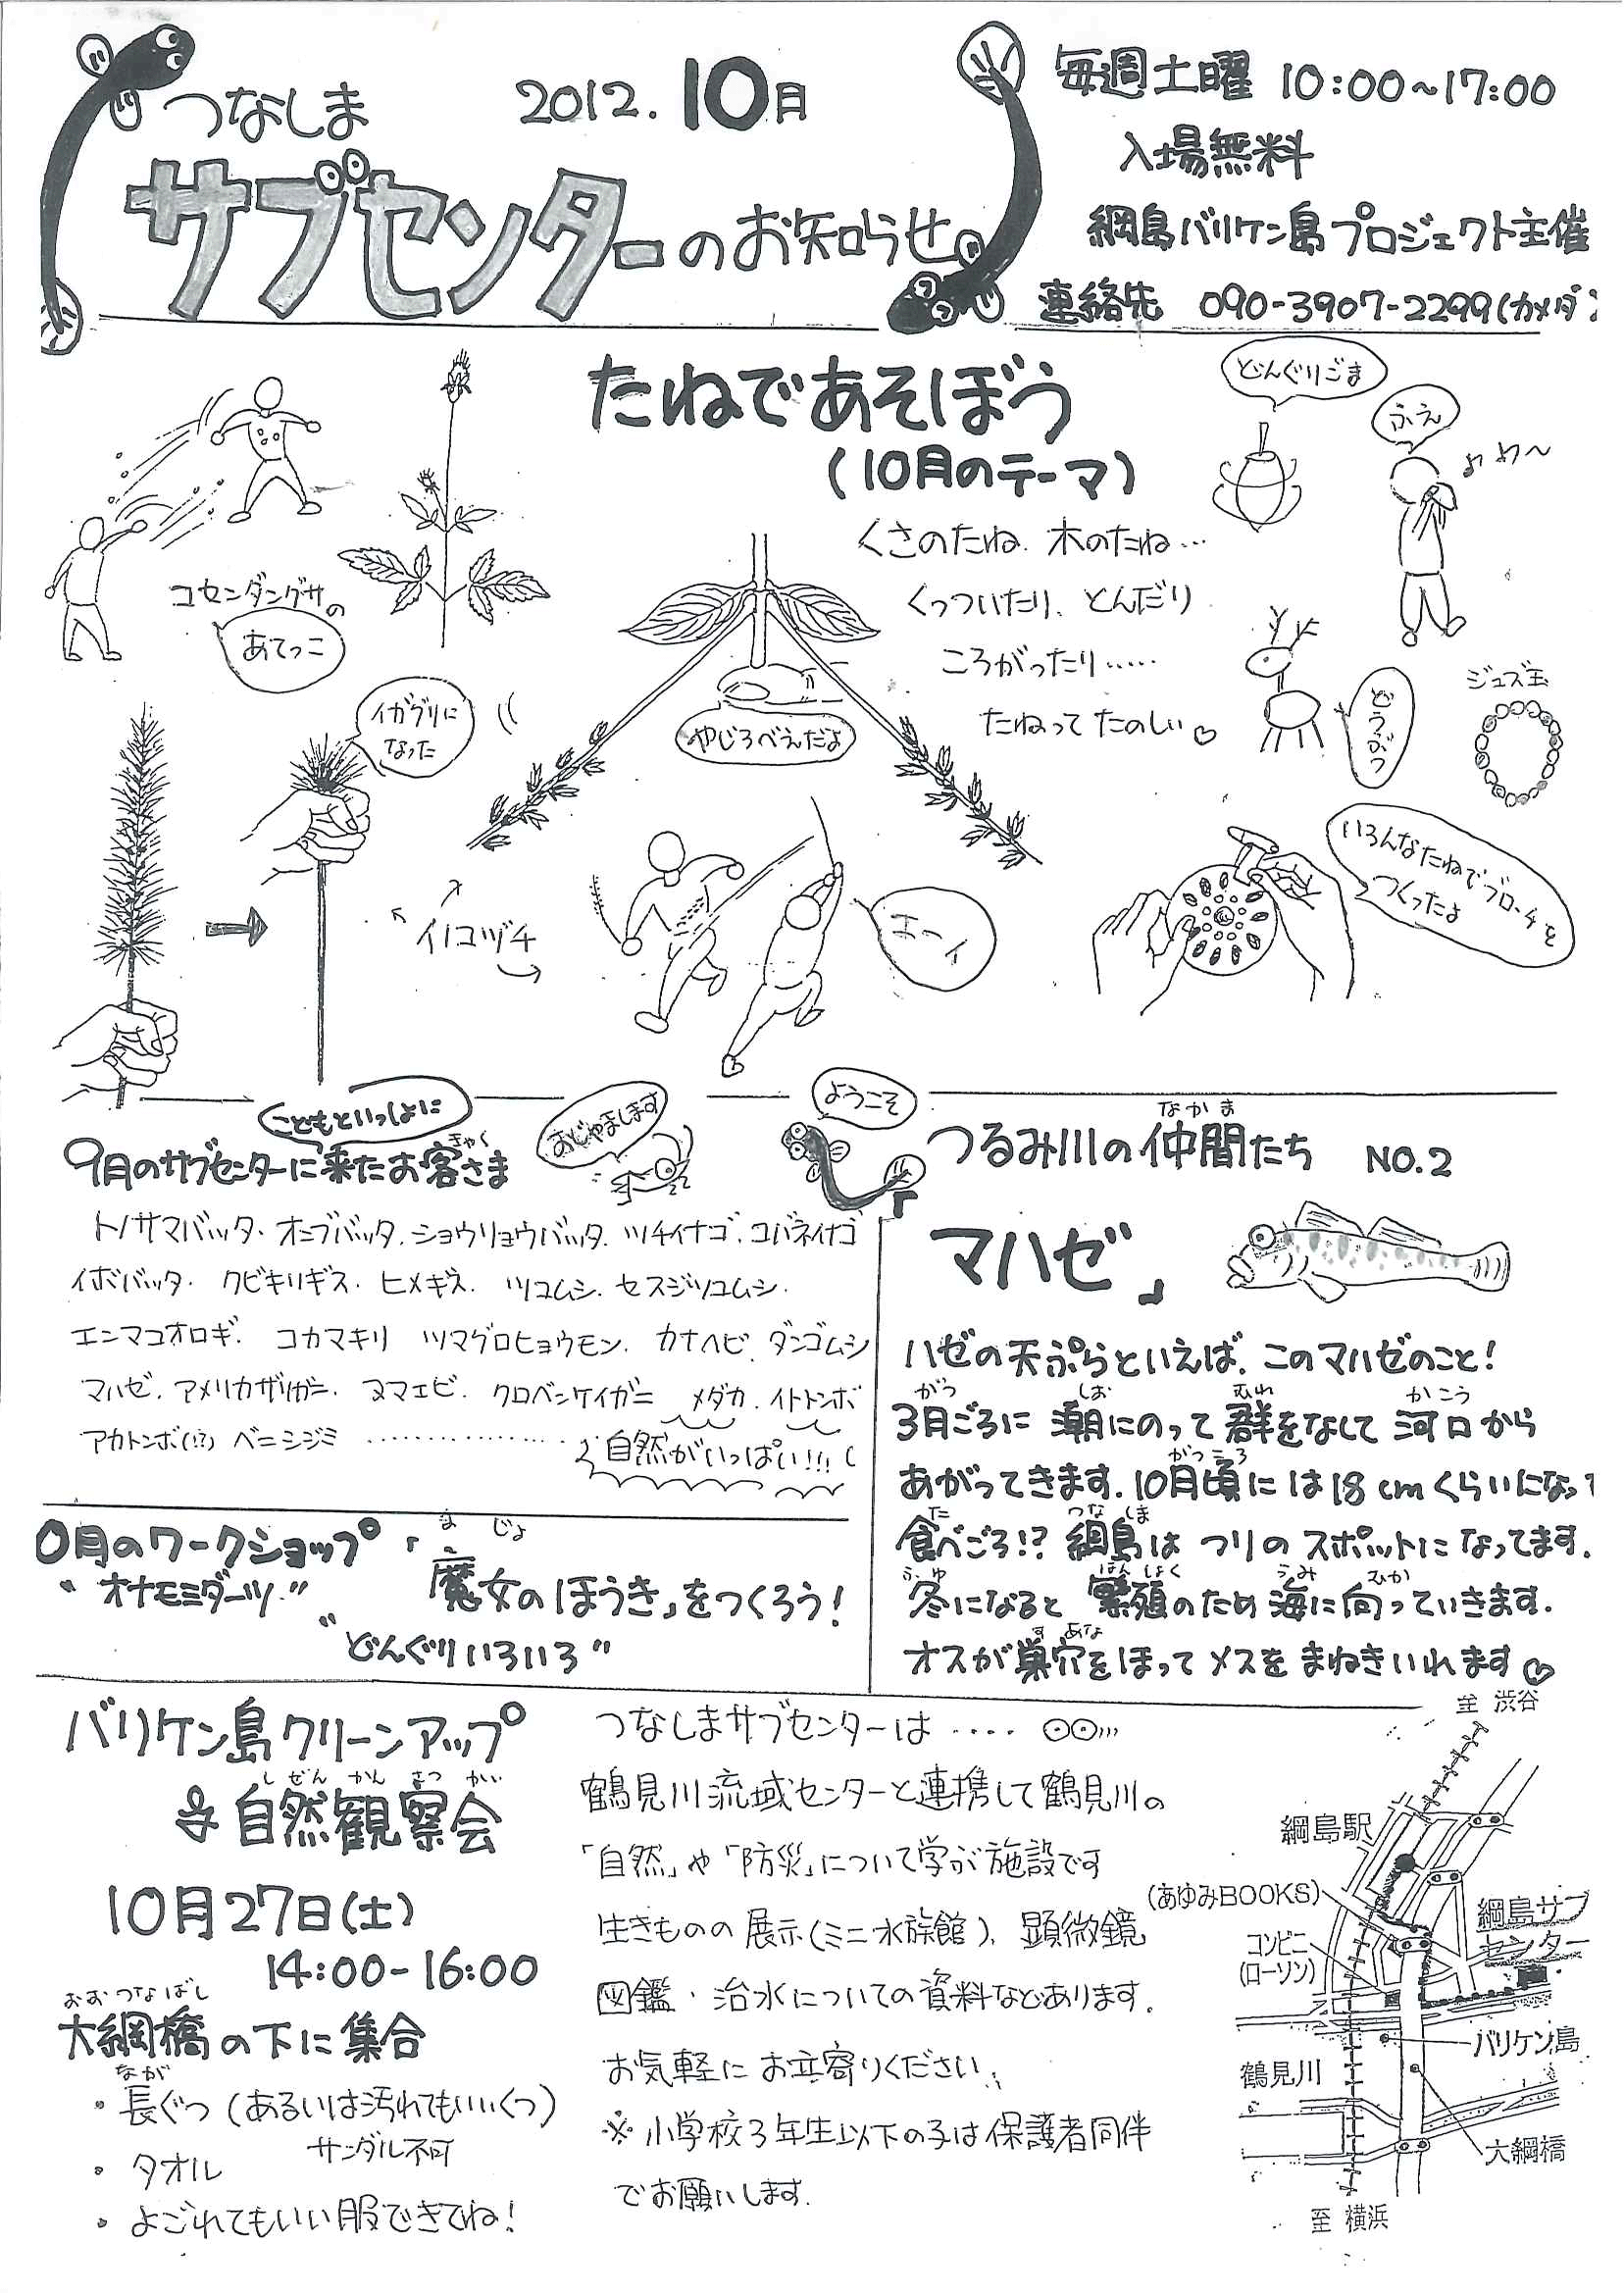 つなしま
2012.10月
サブセンターのお知らせ
毎週土曜 10:00~17:00
入場無料
綱島バリケン島プロジェクト主催
連絡先 090-3907-2299(カメダ
たねであそぼう
(10月のテーマ)
くさのたね、木のたね…
くっついたり、とんだり
ころがったり……
たねって たのしい♡
どんぐりごま
ふえ
コセンダングサの
あてっこ
イガグリに
なった
やじろべえだよ
どうぶつ
ジュズ玉
イノコヅチ
エーイ
いろんなたねでブローチを
つくったよ
こどもといっしょに
9月のサブセンターに来たお客さま
きゃく
おじゃまします
ようこそ
トノサマバッタ・オンブバッタ、ショウリョウバッタ、ツチイナゴ、コバネイナゴ
イボバッタ・クビキリギス・ヒメギス・ツユムシ、セスジツユムシ・
エンマコオロギ・コカマキリ ツマグロヒョウモン、カナヘビ、ダンゴムシ
マハゼ、アメリカザリガニ、ヌマエビ、クロベンケイガニ メダカ、イトトンボ
アカトンボ(!?) ベニシジミ ……………
自然がいっぱい!!!
なかま
つるみ川の仲間たち NO.2
「マハゼ」
ハゼの天ぷらといえば、このマハゼのこと!
がつ しお むれ かこう
3月ごろに 潮にのって 群をなして 河口から
がつころ
あがってきます。10月頃には18cmくらいになって
た つなしま
食べごろ!? 綱島は つりの スポットになってます。
ふゆ はんしょく うみ むか
冬になると 繁殖のため 海に向っていきます。
すあな
オスが巣穴をほって メスを まねきいれます♡
0月のワークショップ「魔女のほうき」をつくろう!
まじょ
"オナモミダーツ"
"どんぐりいろいろ"
バリケン島クリーンアップ
しぜんかんさつかい
& 自然観察会
10月27日(土)
14:00-16:00
おおつなばし
大綱橋の下に集合
なが
・長ぐつ(あるいは汚れてもいいくつ)
サンダル不可
・タオル
・よごれてもいい服できてね!
つなしまサブセンターは‥‥
鶴見川流域センターと連携して鶴見川の
「自然」や「防災」について学ぶ施設です
生きものの展示(ミニ水族館)、顕微鏡
図鑑・治水についての資料などあります。
お気軽にお立寄りください。
※小学校3年生以下の子は保護者同伴
でお願いします。
至 渋谷
綱島駅
(あゆみBOOKS)
綱島サブ
センター
コンビニ
(ローソン)
バリケン島
鶴見川
大綱橋
至 横浜